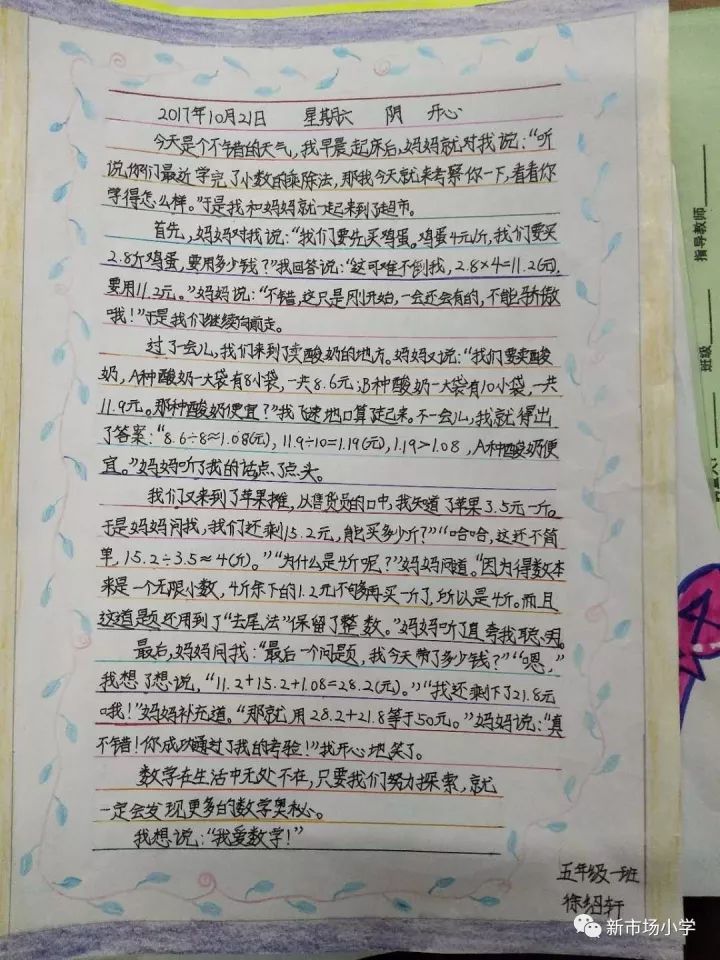 2017年10月21日 星期六 阴 开心
今天是个不错的天气,我早晨起床后,妈妈就对我说:“听
说你们最近学完了小数的乘除法,那我今天就来考察你一下,看看你
学得怎么样。”于是我和妈妈就一起来到了超市。
首先,妈妈对我说:“我们要先买鸡蛋。鸡蛋4元/斤,我们要买
2.8斤鸡蛋,要用多少钱?”我回答说:“这可难不倒我,2.8×4=11.2(元),
要用11.2元。”妈妈说:“不错,这只是刚开始,一会还会有的,不能骄傲
哦!”于是我们继续向前走。
过了一会儿,我们来到了卖酸奶的地方。妈妈又说:“我们要卖酸
奶,A种酸奶一大袋有8小袋,一共8.6元;B种酸奶一大袋有10小袋,一共
11.9元。那种酸奶便宜?”我飞速地口算起来。不一会儿,我就得出
了答案:“8.6÷8≈1.08(元),11.9÷10=1.19(元),1.19>1.08,A种酸奶便
宜。”妈妈听了我的话点了点头。
我们又来到了苹果摊,从售货员的口中,我知道了苹果3.5元一斤。
于是妈妈问我,我们还剩15.2元,能买多少斤?”“哈哈,这还不简
单,15.2÷3.5≈4(斤)。”“为什么是4斤呢?”妈妈问道。“因为得数本
来是一个无限小数,4斤余下的1.2元不够再买一斤了,所以是4斤。而且
这道题还用到了“去尾法”保留了整数。”妈妈听了直夸我聪明。
最后,妈妈问我:“最后一个问题,我今天带了多少钱?”“嗯,”
我想了想说,“11.2+15.2+1.08=28.2(元)。”“我还剩下了21.8元
哦!”妈妈补充道。“那就用28.2+21.8等于50元。”妈妈说:“真
不错!你成功通过了我的考验!”我开心地笑了。
数学在生活中无处不在,只要我们努力探索,就
一定会发现更多的数学奥秘。
我想说:“我爱数学!”
五年级一班
徐绍轩
指导教师
班级
新市场小学